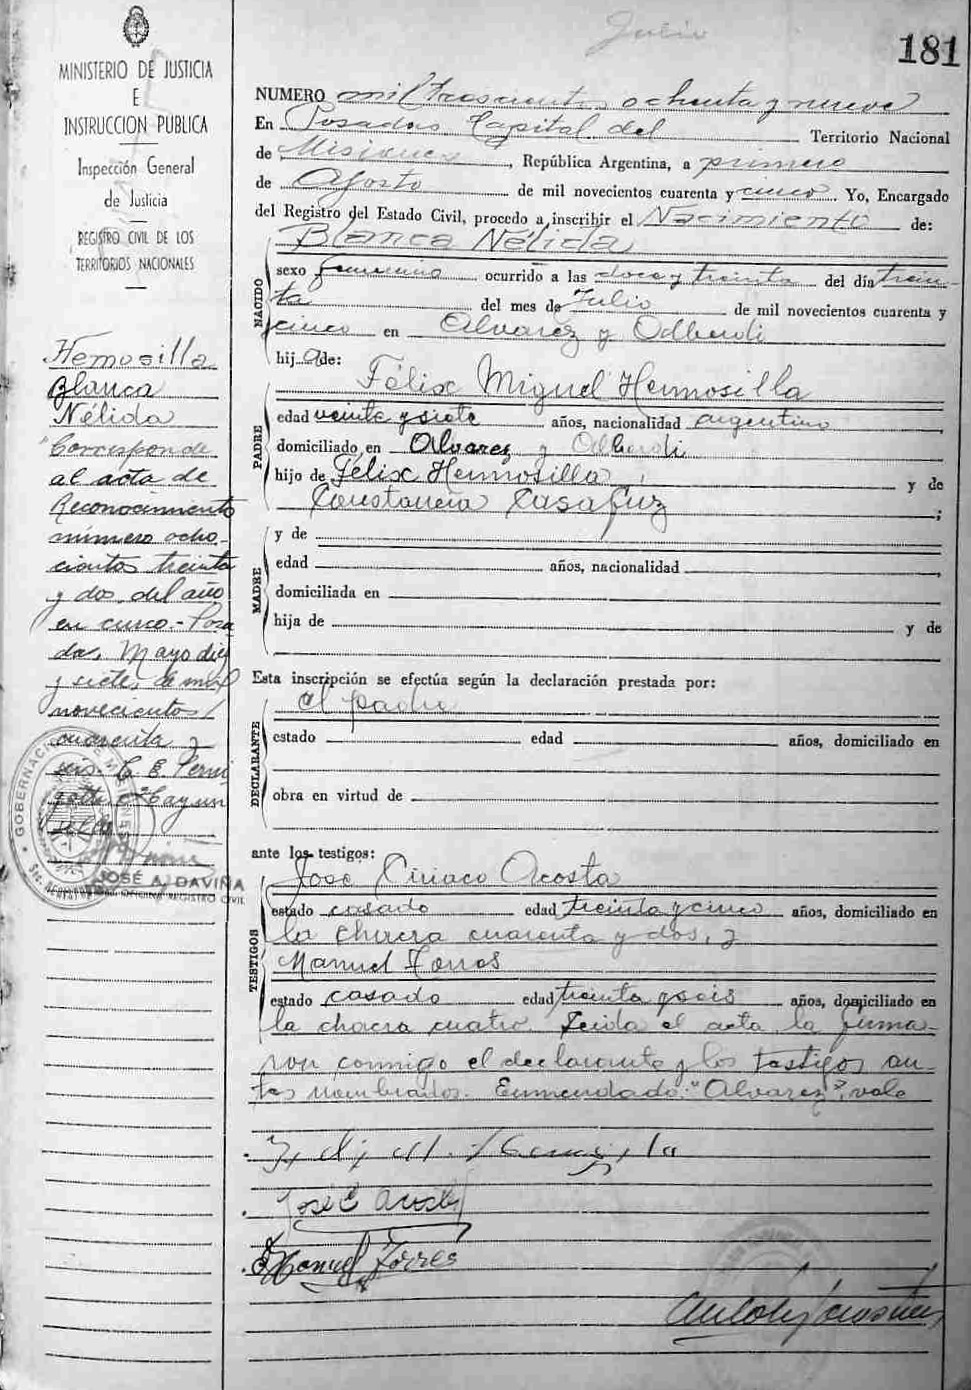 Julio
181
MINISTERIO DE JUSTICIA
E
INSTRUCCION PUBLICA
Inspección General
de Justicia
REGISTRO CIVIL DE LOS
TERRITORIOS NACIONALES
Hemosilla
Blanca
Nélida
"Corresponde
al acta de
Reconocimiento
número ocho-
cientos treinta
y dos, del año
en curso.- Posa
das, Mayo diez
y siete, de mil
novecientos
cuarenta y
seis.
JOSÉ A. DAVIÑA
OFICINA REGISTRO CIVIL
GOBERNACION MISIONES
NUMERO mil trescientos ochenta y nueve
En Posadas Capital del Territorio Nacional
de Misiones, República Argentina, a primero
de Agosto de mil novecientos cuarenta y cinco. Yo, Encargado
del Registro del Estado Civil, procedo a inscribir el Nacimiento de:
NACIDO
Blanca Nélida
sexo femenino ocurrido a las doce y treinta del día trein-
ta del mes de Julio de mil novecientos cuarenta y
cinco en Alvarez y Odherdi
hij a de:
PADRE
Félix Miguel Hemosilla
edad veinte y siete años, nacionalidad argentino
domiciliado en Alvarez y Odherdi
hijo de Félix Hemosilla y de
Constancia Casafuz;
MADRE
y de
edad años, nacionalidad
domiciliada en
hija de y de
Esta inscripción se efectúa según la declaración prestada por:
DECLARANTE
el padre
estado edad años, domiciliado en
obra en virtud de
ante los testigos:
TESTIGOS
José Ciriaco Acosta
estado casado edad treinta y cinco años, domiciliado en
la chacra cuarenta y dos, y
Manuel Torres
estado casado edad treinta y seis años, domiciliado en
la chacra cuatro. Leida el acta la firma-
ron conmigo el declarante y los testigos an-
tes nombrados. Enmendado: "Alvarez", vale
José C Acosta
Manuel Torres